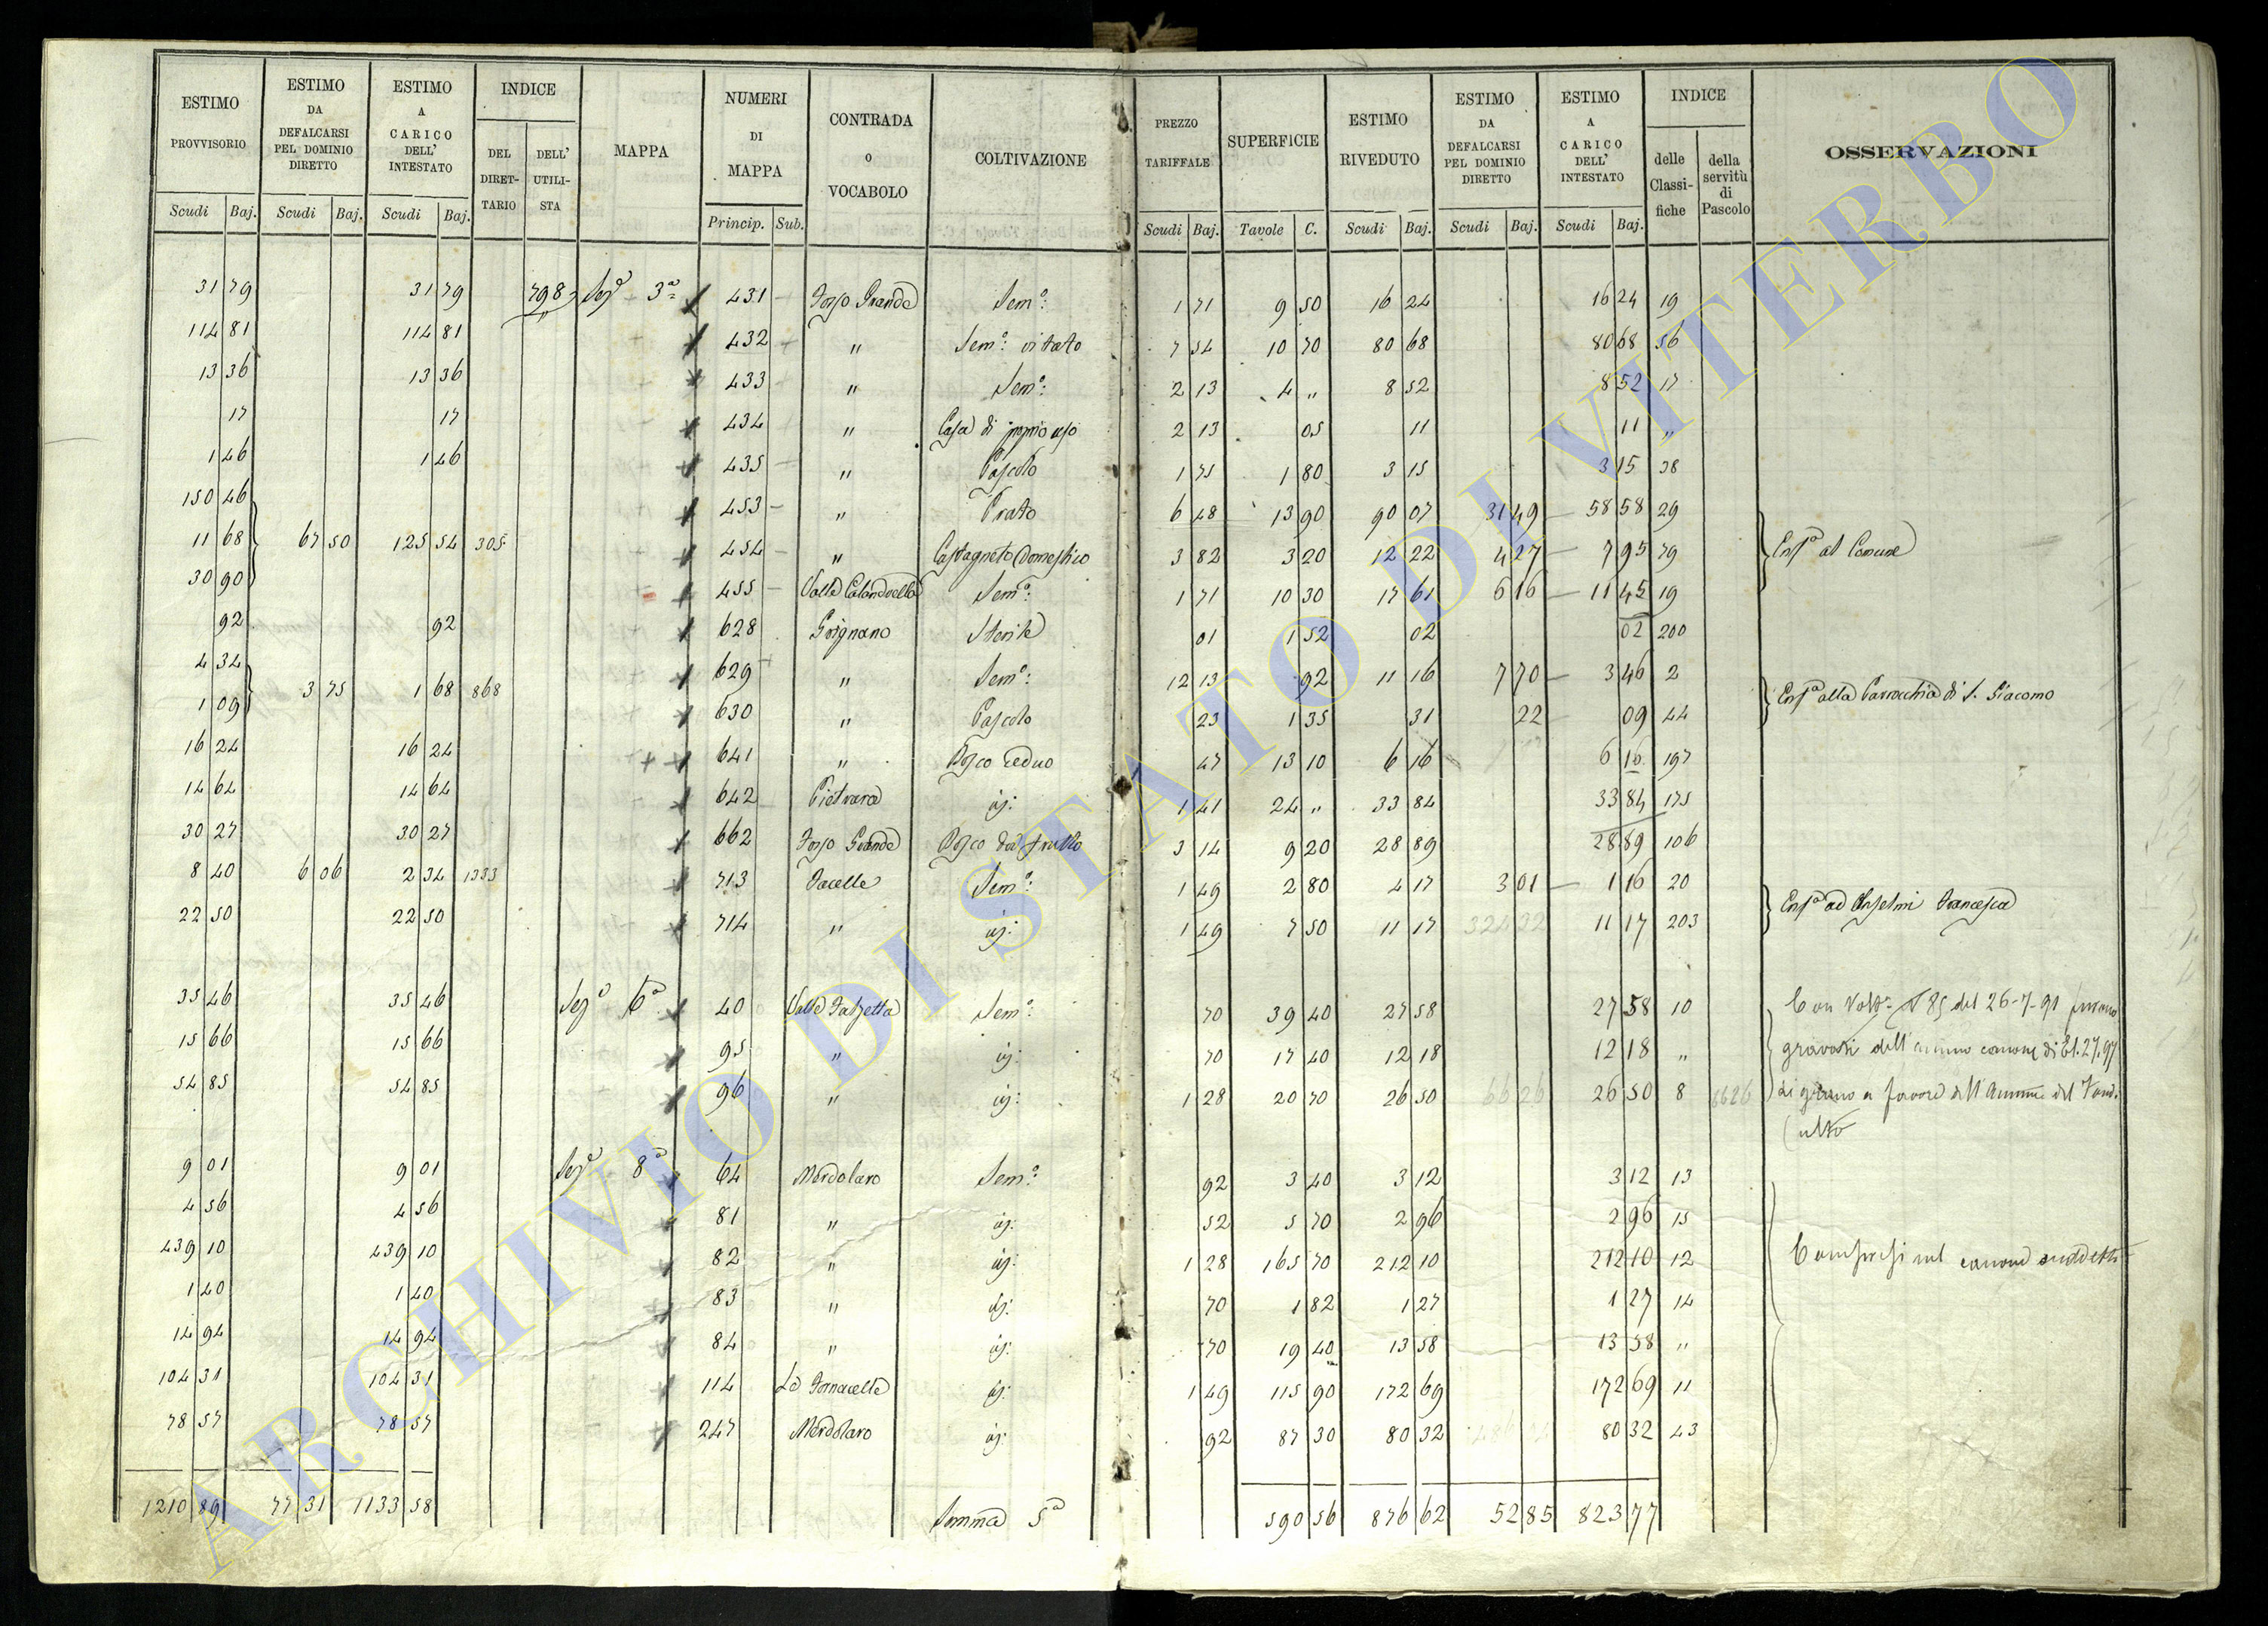 ESTIMO PROVVISORIO | ESTIMO DA DEFALCARSI PEL DOMINIO DIRETTO | ESTIMO A CARICO DELL' INTESTATO | INDICE | MAPPA | NUMERI DI MAPPA | CONTRADA O VOCABOLO | COLTIVAZIONE | PREZZO TARIFFALE | SUPERFICIE | ESTIMO RIVEDUTO | ESTIMO DA DEFALCARSI PEL DOMINIO DIRETTO | ESTIMO A CARICO DELL' INTESTATO | INDICE | OSSERVAZIONI
DEL DIRET-TARIO | DELL' UTILI-STA | delle Classi-fiche | della servitù di Pascolo
Scudi | Baj. | Scudi | Baj. | Scudi | Baj. | Princip. | Sub. | Scudi | Baj. | Tavole | C. | Scudi | Baj. | Scudi | Baj. | Scudi | Baj.
31 79 | 31 79 | 798 | Sezª 3ª | 431 | Fosso Grande | Semº: | 1 71 | 9 50 | 16 24 | 16 24 | 19
114 81 | 114 81 | 432 | " | Semº: vitato | 7 54 | 10 70 | 80 68 | 80 68 | 56
13 36 | 13 36 | 433 | " | Semº: | 2 13 | 4 " | 8 52 | 8 52 | 17
17 | 17 | 434 | " | Casa di proprio uso | 2 13 | 05 | 11 | 11 | "
1 46 | 1 46 | 435 | " | Pascolo | 1 75 | 1 80 | 3 15 | 3 15 | 38
150 46 | 453 | " | Prato | 6 48 | 13 90 | 90 07 | 31 49 | 58 58 | 29
11 68 | 67 50 | 125 54 | 305 | 454 | " | Castagneto domestico | 3 82 | 3 20 | 12 22 | 4 27 | 7 95 | 79 | Enfª al Comune
30 90 | 455 | Valle Calandrella | Semº: | 1 71 | 10 30 | 17 61 | 6 16 | 11 45 | 19
92 | 92 | 628 | Gorignano | Sterile | 01 | 1 52 | 02 | 02 | 200
4 34 | 629 | " | Semº: | 12 13 | 92 | 11 16 | 7 70 | 3 46 | 2
1 09 | 3 75 | 1 68 | 868 | 630 | " | Pascolo | 23 | 1 35 | 31 | 22 | 09 | 44 | Enfª alla Parrocchia di S. Giacomo
16 24 | 16 24 | 641 | " | Bosco ceduo | 47 | 13 10 | 6 16 | 6 16 | 197
14 64 | 14 64 | 642 | Pietrara | id: | 1 41 | 24 " | 33 84 | 33 84 | 175
30 27 | 30 27 | 662 | Fosso Grande | Bosco da frutto | 3 14 | 9 20 | 28 89 | 28 89 | 106
8 40 | 6 06 | 2 34 | 1333 | 713 | Facelle | Semº: | 1 49 | 2 80 | 4 17 | 3 01 | 1 16 | 20 | Enfª ad Anselmi Francesca
22 50 | 22 50 | 714 | " | id: | 1 49 | 7 50 | 11 17 | 11 17 | 203
35 46 | 35 46 | Sezª 6ª | 40 | Valle Falzetta | Semº: | 70 | 39 40 | 27 58 | 27 58 | 10 | Con Voltª N 85 del 26-7-91 furono
15 66 | 15 66 | 95 | " | id: | 70 | 17 40 | 12 18 | 12 18 | " | gravati dell'annuo canone di El. 27.97
54 85 | 54 85 | 96 | " | id: | 1 28 | 20 70 | 26 50 | 66 26 | 26 50 | 8 | 6626 | di grano a favore dell'Ammne del Fondo
culto
9 01 | 9 01 | Sezª 8ª | 64 | Merdolaro | Semº: | 92 | 3 40 | 3 12 | 3 12 | 13
4 56 | 4 56 | 81 | " | id: | 52 | 5 70 | 2 96 | 2 96 | 15
439 10 | 439 10 | 82 | " | id: | 1 28 | 165 70 | 212 10 | 212 10 | 12 | Compresi nel canone suddetto
1 40 | 1 40 | 83 | " | id: | 70 | 1 82 | 1 27 | 1 27 | 14
14 94 | 14 94 | 84 | " | id: | 70 | 19 40 | 13 58 | 13 58 | "
104 31 | 104 31 | 114 | Le Fornacelle | id: | 1 49 | 115 90 | 172 69 | 172 69 | 11
78 57 | 78 57 | 247 | Merdolaro | id: | 92 | 87 30 | 80 32 | 80 32 | 43
1210 89 | 77 31 | 1133 58 | Somma 5ª | 590 56 | 876 62 | 52 85 | 823 77
ARCHIVIO DI STATO DI VITERBO